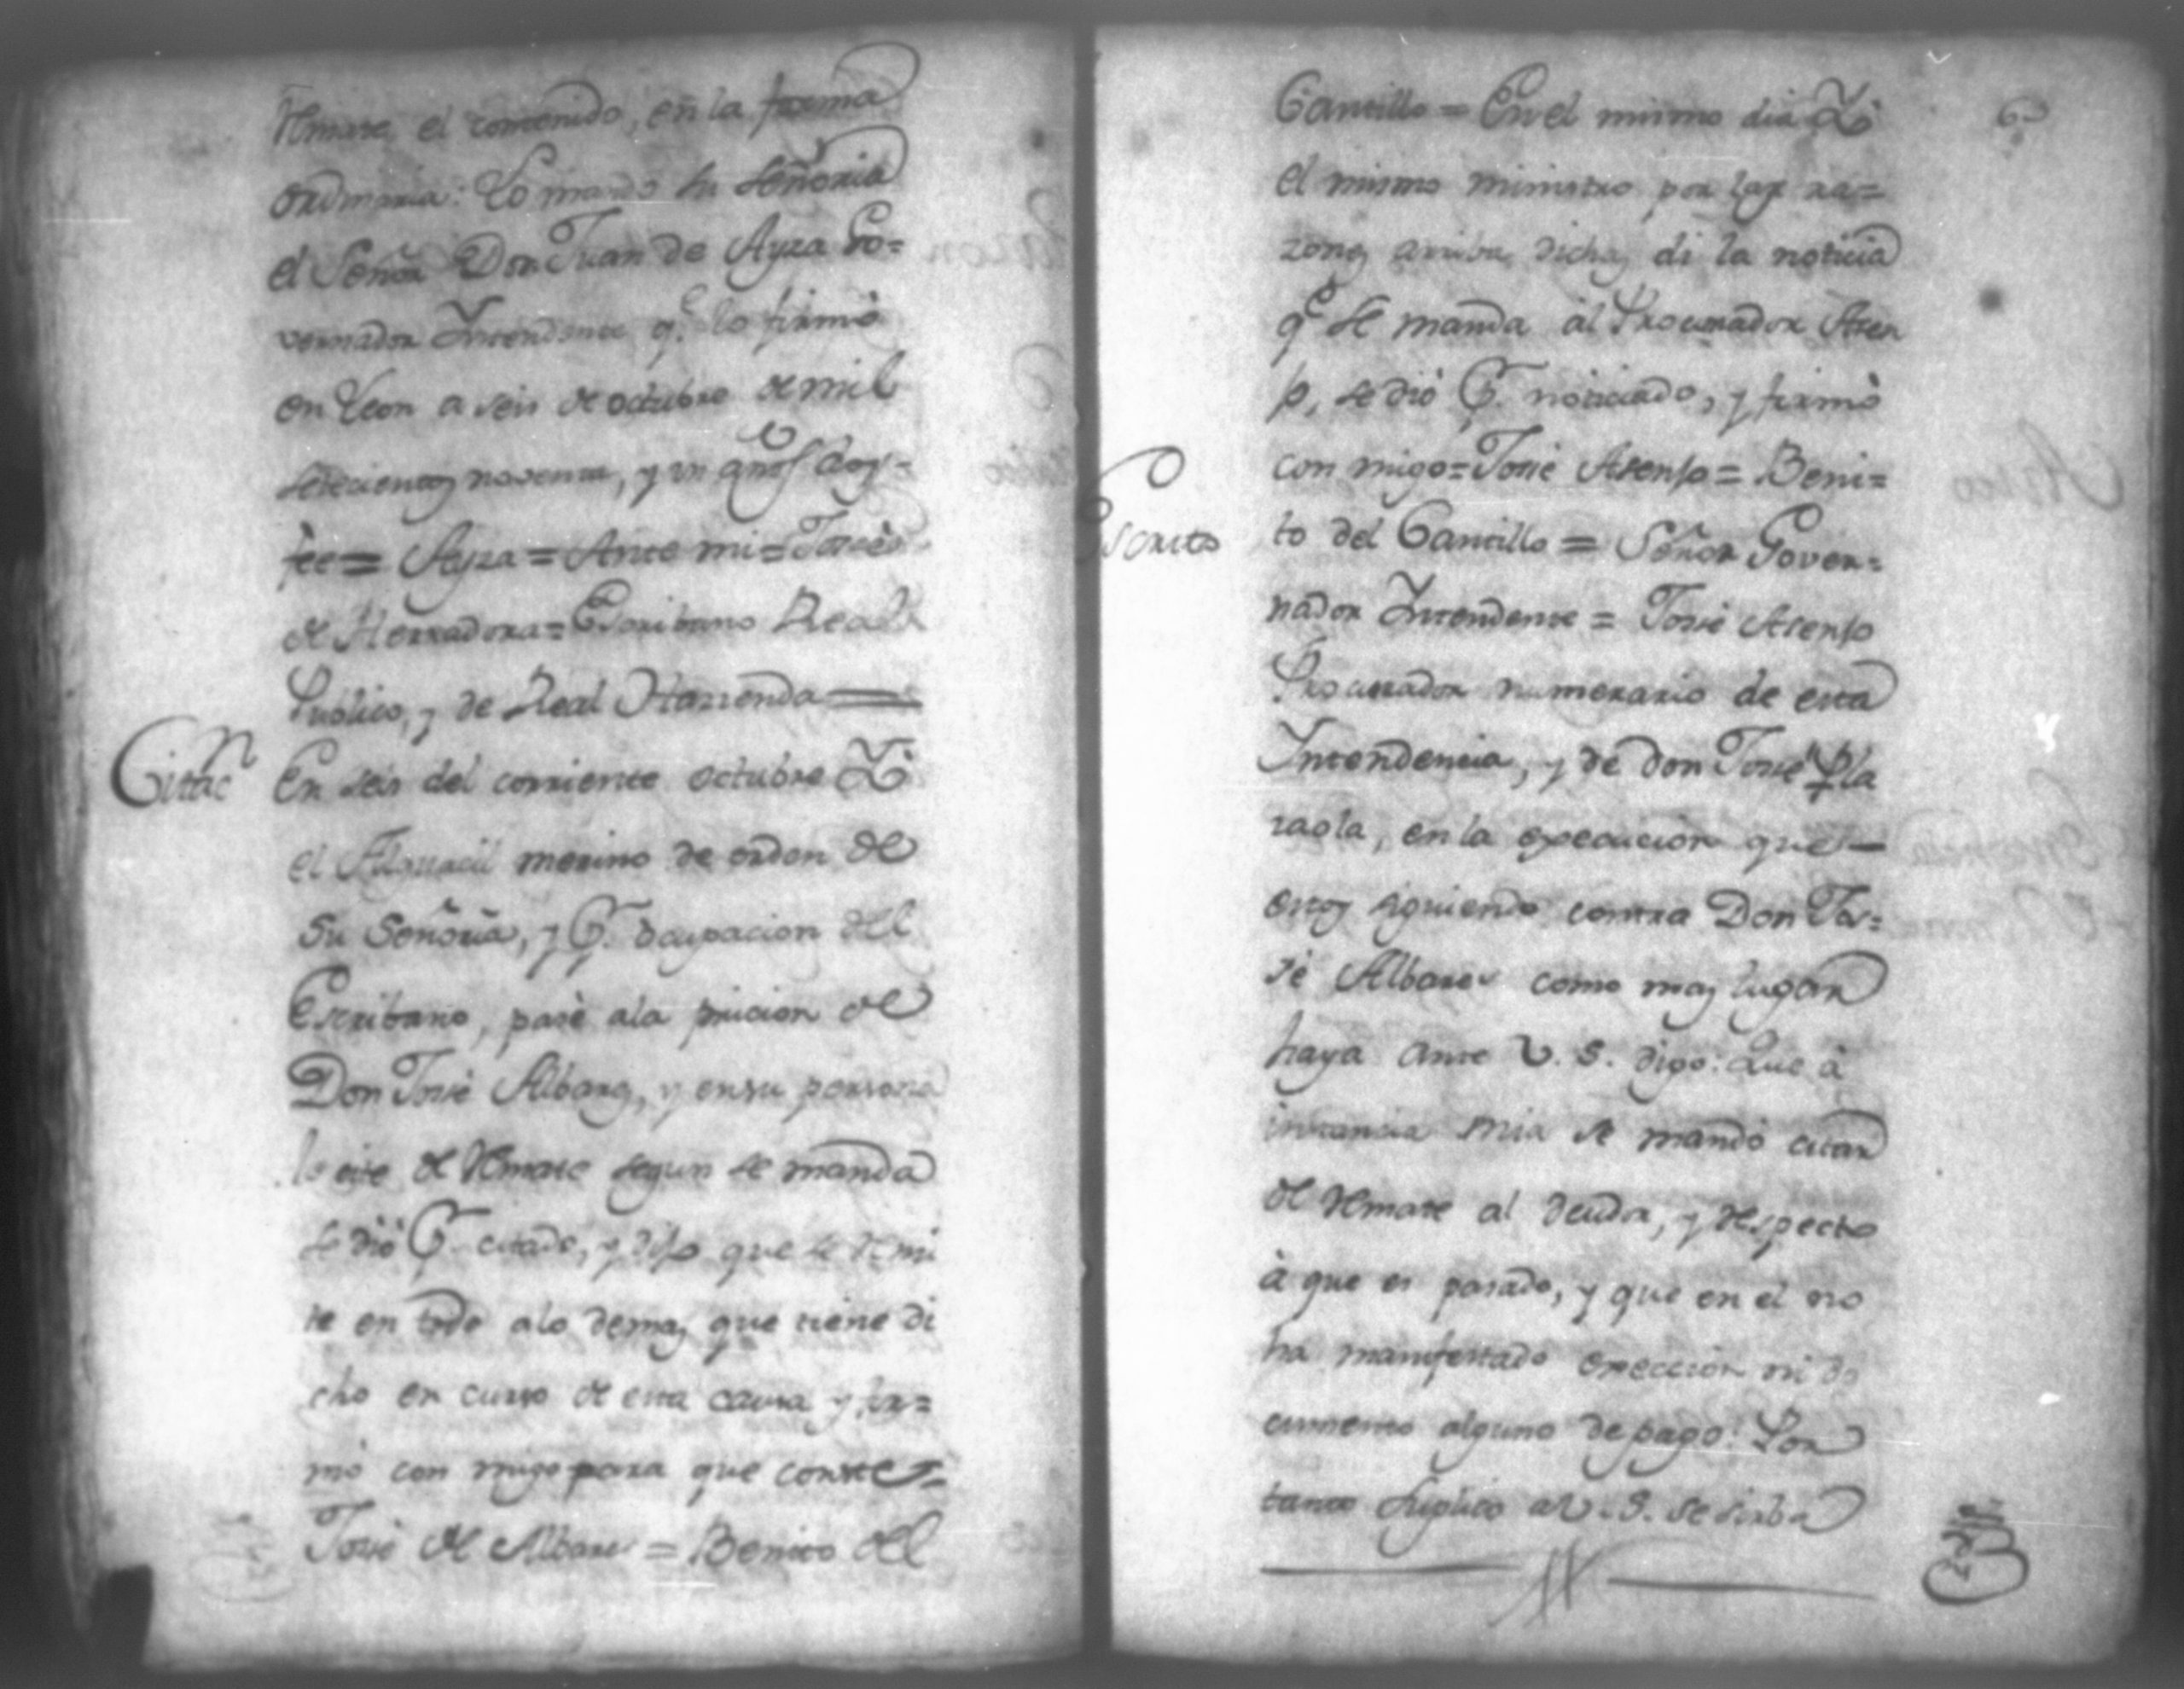 Remate el contenido, en la forma
ordinaria: Lo mando su Señoria
el Señor Don Juan de Ayza Go=
vernador Yntendente q.e lo firmò
en Leon a seis de octubre de mil
setecientos noventa, y un años doy=
fee= Ayza = Ante mi= Josè
de Herradora= Escribano Real
Publico, y de Real Hazienda =
Citac.n
En seis del corriente octubre Yo
el Alguacil merino de orden de
su Señoria, y P.r ocupacion del
Escribano, pasè ala pricion de
Don Josè Albares, y ensu persona
lo cite de Remate segun se manda
se diò P.r citado, y dijo que se remi
te en todo alo demas que tiene di
cho en curso de esta causa y fir=
mò con migo para que conste=
Josè de Albares = Benito del
6
Cantillo = En el mismo dia Yo
el mismo ministro por las ra=
zones arriba dichas di la noticia
q.e se manda al Procurador Asen
jo, se diò P.r noticiado, y firmò
con migo= Josè Asenjo = Beni=
to del Cantillo = Señor Gover=
Escrito
nador Yntendente = Josè Asenjo
Procurador numerario de esta
Yntendencia, y de don Josè Pla
zaola, en la execucion que
estoy siguiendo contra Don Jo=
sè Albares como mas lugar
haya ante V. S. digo: Que à
instancia mia se mandò citar
de Remate al deudor, y respecto
à que es pasado, y que en el no
ha manifestado execcion ni do
cumento alguno de pago: Por
tanto suplico a V. S. se sirba